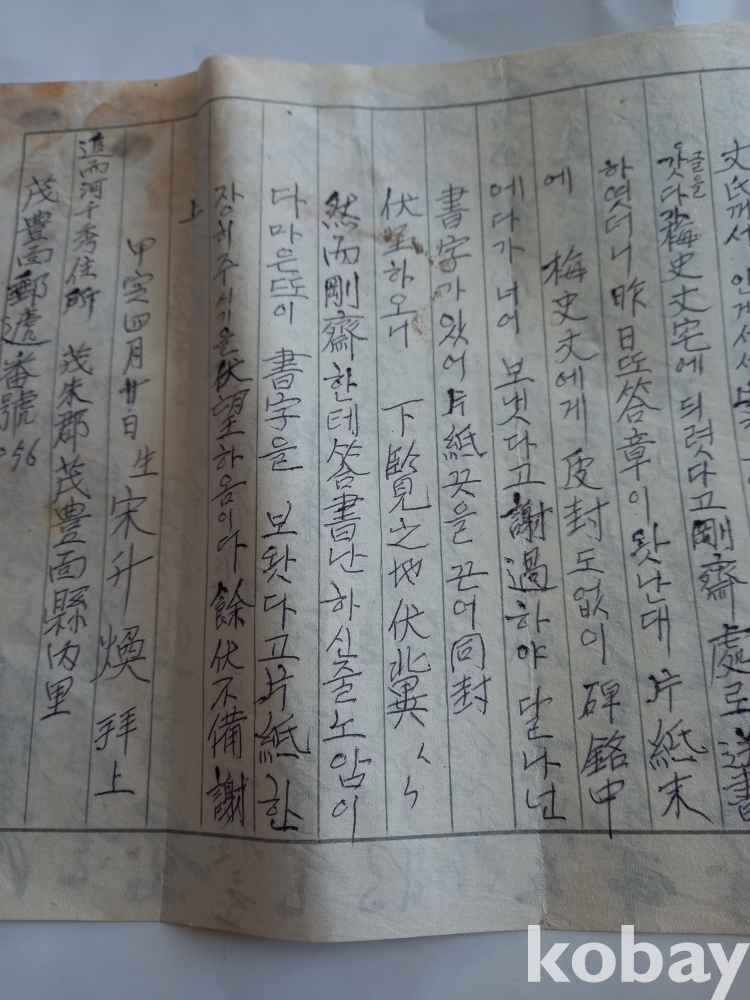 丈氏께서
갓다가 글을 梅史丈宅에 듸렷다고 剛齋處로 送書
하엿더니 昨日또答章이 왓난대 片紙末
에 梅史丈에게 皮封도없이 碑銘中
에다가 너어 보냇다고 謝過하야 달나넌
書字가 있어 片紙끗을 끈어同封
伏呈하오니 下覽之地伏冀
然而剛齋한테答書난 하신줄노 암이
다마은또이 書字을 보왓다고片紙 한
장히주시기을伏望하옴이다 餘伏不備謝
上
甲寅四月廿日 生 宋升煥 拜上
進而河千秀住所 茂朱郡 茂豊面縣內里
茂豊面郵遞番號 56
kobay